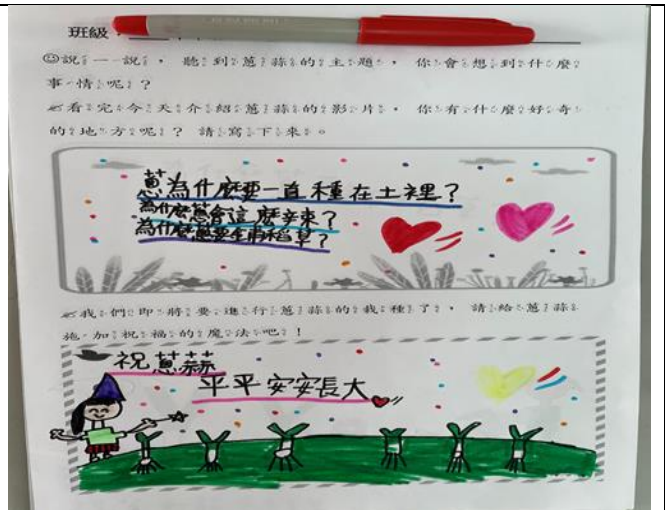 班級：
☺說一說，聽到蔥蒜的主題，你會想到什麼
事情呢？
✍看完今天介紹蔥蒜的影片，你有什麼好奇
的地方呢？請寫下來。
蔥為什麼要一直種在土裡？
為什麼蔥會這麼辛束？
為什麼蔥要全雨稻草？
✍我們即將要進行蔥蒜的栽種了，請給蔥蒜
施加祝福的魔法吧！
祝蔥蒜
平平安安長大